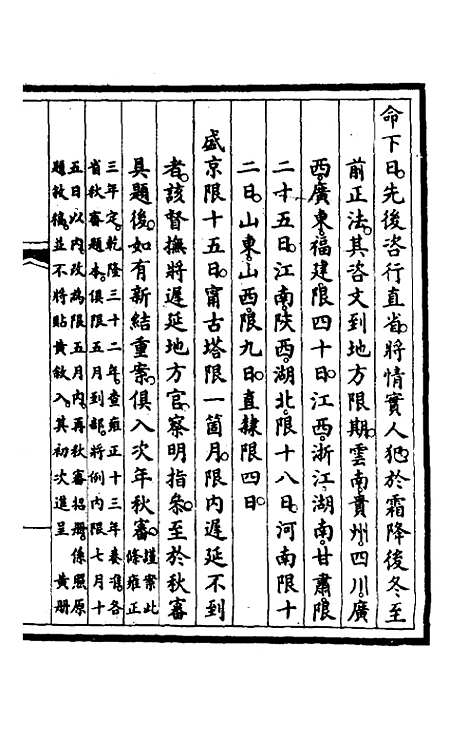 命下日。先後咨行直省。將情實人犯。於霜降後冬至
前正法。其咨文到地方限期。雲南。貴州。四川。廣
西。廣東。福建。限四十日。江西。浙江。湖南。甘肅。限
二十五日。江南。陝西。湖北。限十八日。河南限十
二日。山東。山西。限九日。直隸限四日。
盛京限十五日。甯古塔限一箇月。限內遲延不到
者。該督撫將遲延地方官。察明指參。至於秋審
具題後。如有新結重案。俱入次年秋審。謹案此條雍正
三年定。乾隆三十二年。查雍正十三年奏准。各
省秋審題本。俱限五月到部。將例內限七月十
五日以內。改為限五月內。再秋審招冊。係照原
題敘稿。並不將貼黃敘入。其初次進呈 黃冊